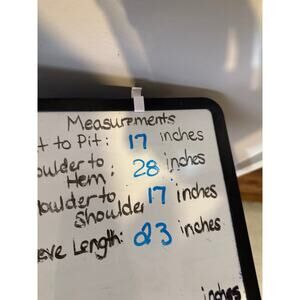 Measurements
t to Pit: 17 inches
oulder to
Hem: 28 inches
oulder to
Shoulder 17 inches
eve Length: 23 inches
inches